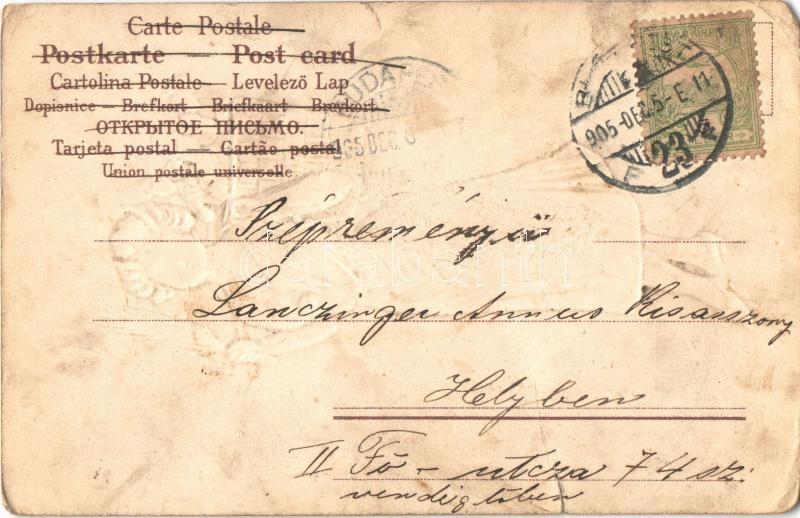 Carte Postale
Postkarte — Post card
Cartolina Postale – Levelező Lap
Dopisnice – Brefkort – Briefkaart – Brevkort
ОТКРЫТОЕ ПИСЬМО.
Tarjeta postal – Cartão postal
Union postale universelle.
BUDAPEST
905 DEC. 6
905-DEC. 5- E 11
23
Szépreményű
Lanczinger Annus Kisasszony
Helyben
II Fő-utcza 74 sz.
vendéglőben
darabanth